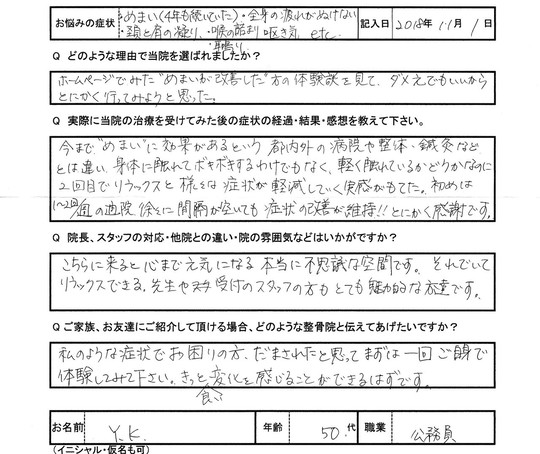 お悩みの症状
・めまい(4年も続いていた)・全身の疲れがぬけない
・頚と肩の凝り、・喉の詰まり 嘔き気、etc.
・耳鳴り
記入日
2018年 11月 1日
Q どのような理由で当院を選ばれましたか?
ホームページでみた“めまいが改善した”方の体験談を見て、ダメもとでもいいから
とにかく行ってみようと思った。
Q 実際に当院の治療を受けてみた後の症状の経過・結果・感想を教えて下さい。
今まで“めまい”に効果があるという 都内外の病院や整体・鍼灸など
とは違い、身体に触れてボキボキするわけでもなく、軽く触れているかどうかなのに
2回目でリラックスと様々な症状が軽減していく実感がもてた。初めは
1〜2回/週の通院、徐々に間隔が空いても症状の改善が維持!!とにかく感謝です。
Q 院長、スタッフの対応・他院との違い・院の雰囲気などはいかがですか?
こちらに来ると心まで元気になる本当に不思議な空間です。それでいて
リラックスできる。先生や 受付のスタッフの方も とても魅力的な方達です。
Q ご家族、お友達にご紹介して頂ける場合、どのような整骨院と伝えてあげたいですか?
私のような症状でお困りの方、だまされたと思って まずは一回 ご自身で
体験してみて下さい。きっと変化を感じることができるはずです。
お名前
Y.K.
年齢
50 代
職業
公務員
(イニシャル・仮名も可)